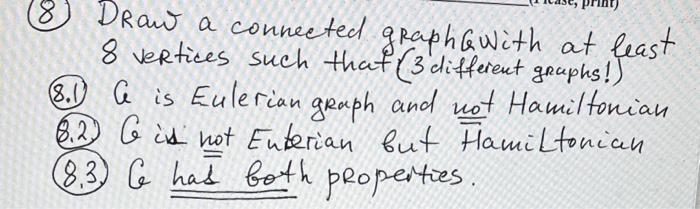 (Please, print)
8 DRaw a connected graph G with at least
8 vertices such that (3 different graphs!)
8.1) G is Eulerian graph and not Hamiltonian
8.2) G is not Euterian but HamiLtonian
8.3) G has both properties.